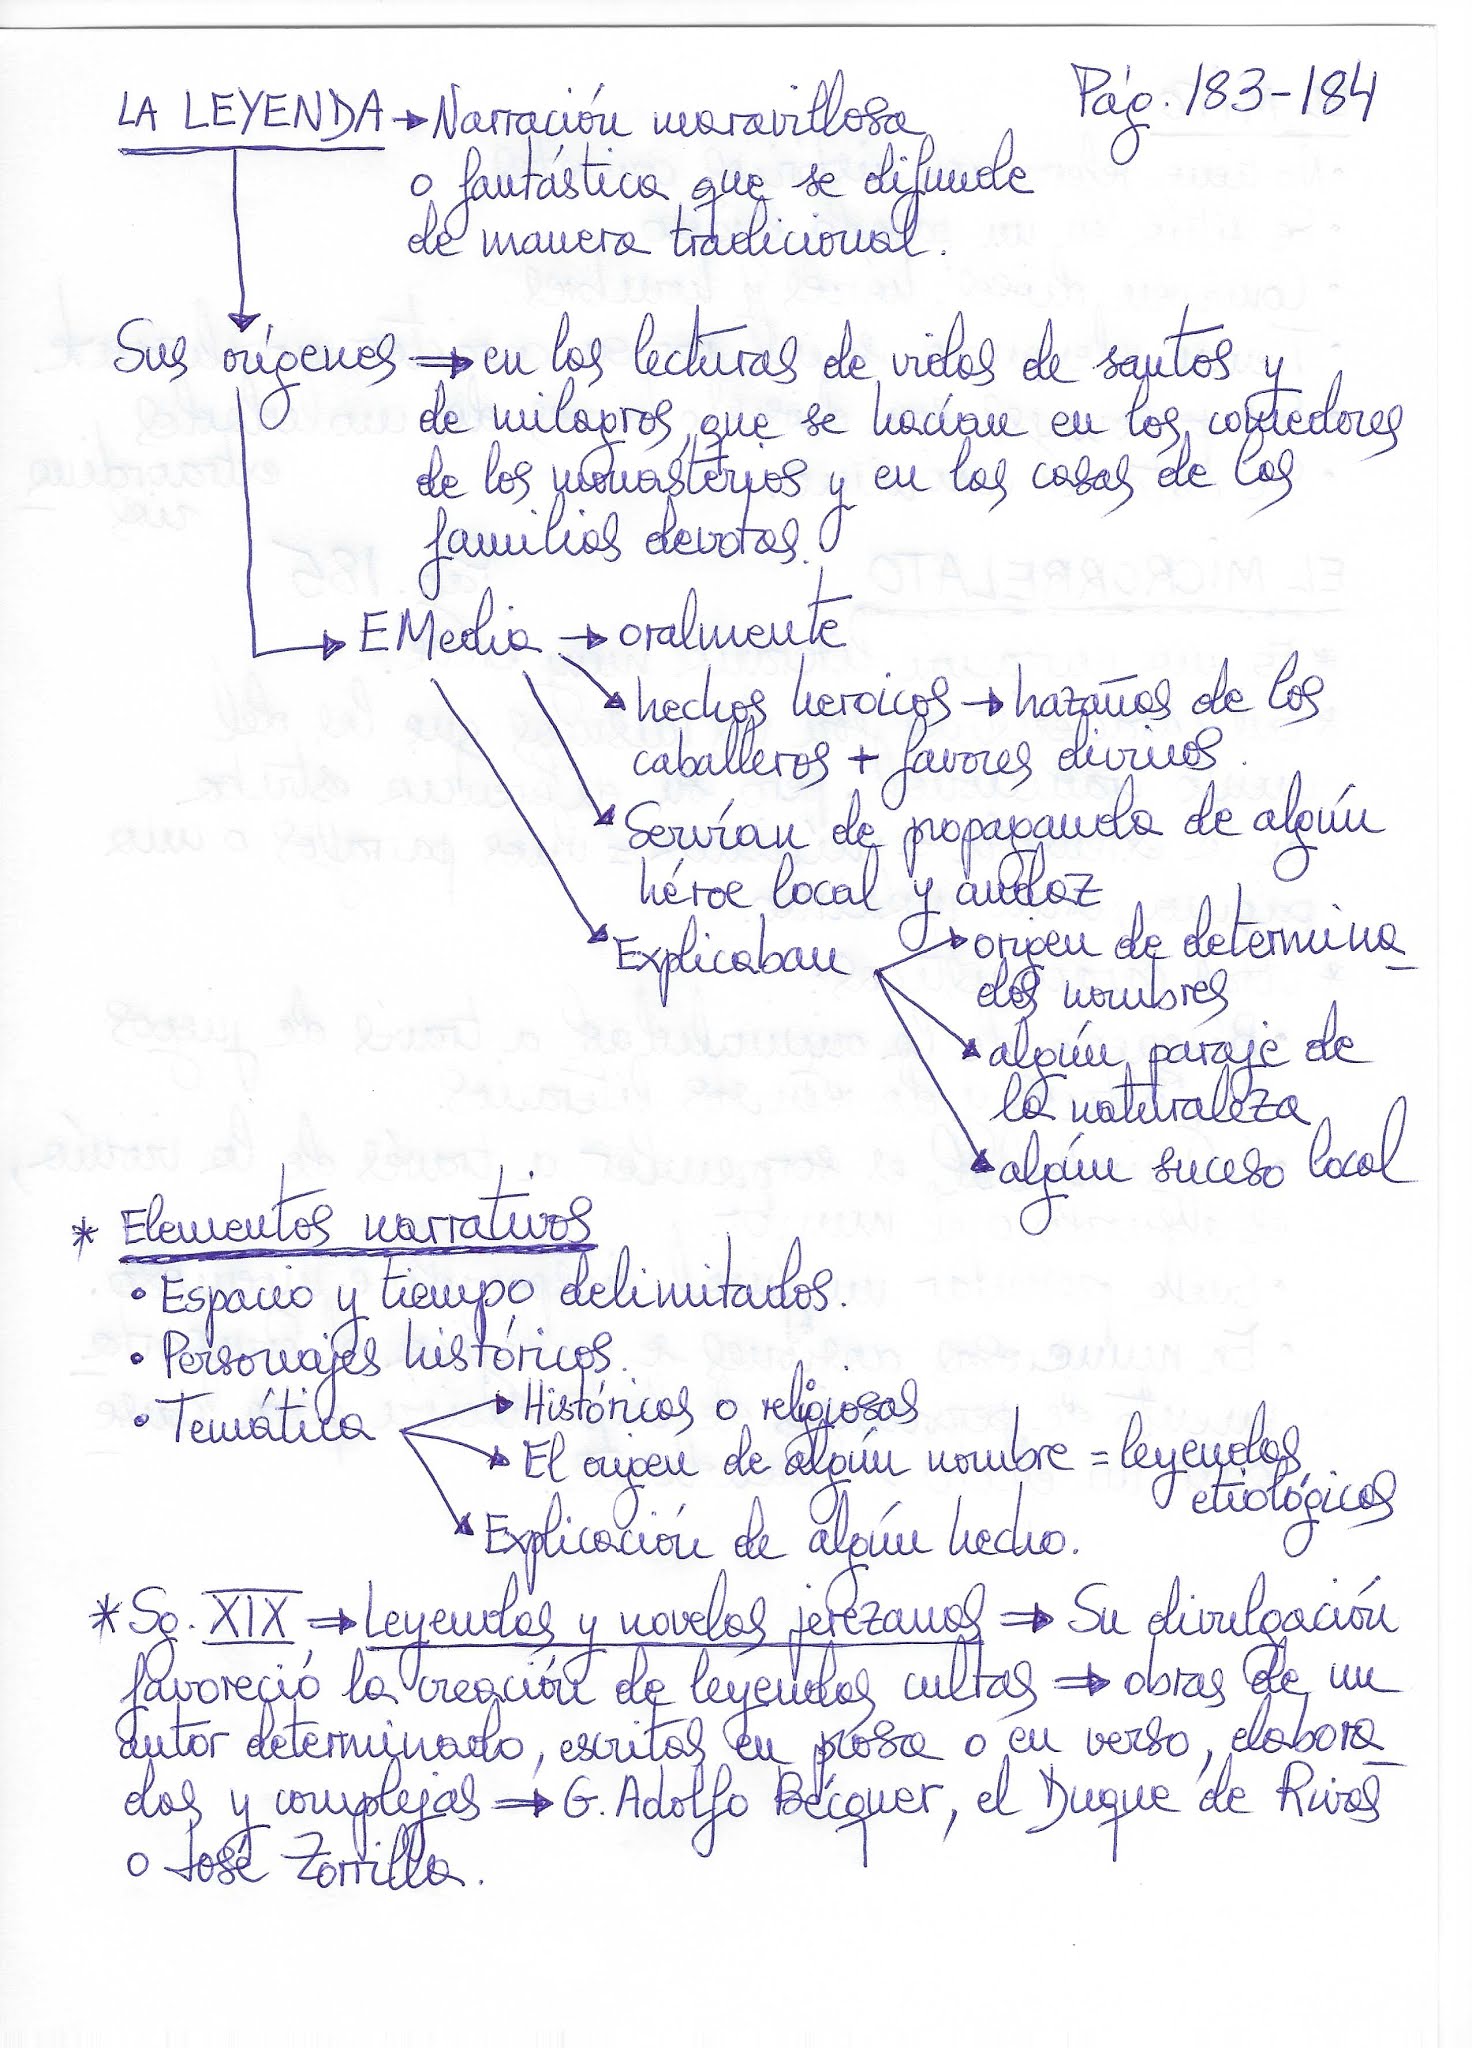 Pág. 183-184
LA LEYENDA → Narración maravillosa
o fantástica que se difunde
de manera tradicional.
Sus orígenes ⇒ en las lecturas de vidas de santos y
de milagros que se hacían en los comedores
de los monasterios y en las casas de las
familias devotas.
E Media → oralmente
hechos heroicos → hazañas de los
caballeros + favores divinos.
Servían de propaganda de algún
héroe local y audaz
Explicaban
origen de determina_
dos nombres
algún paraje de
la naturaleza
algún suceso local
* Elementos narrativos
• Espacio y tiempo delimitados.
• Personajes históricos.
• Temática
Históricas o religiosas
El origen de algún nombre = leyendas
etiológicas
Explicación de algún hecho.
* Sg. XIX ⇒ Leyendas y novelas jerezanas ⇒ Su divulgación
favoreció la creación de leyendas cultas ⇒ obras de un
autor determinado, escritas en prosa o en verso, elabora_
das y complejas ⇒ G. Adolfo Bécquer, el Duque de Rivas
o José Zorrilla.